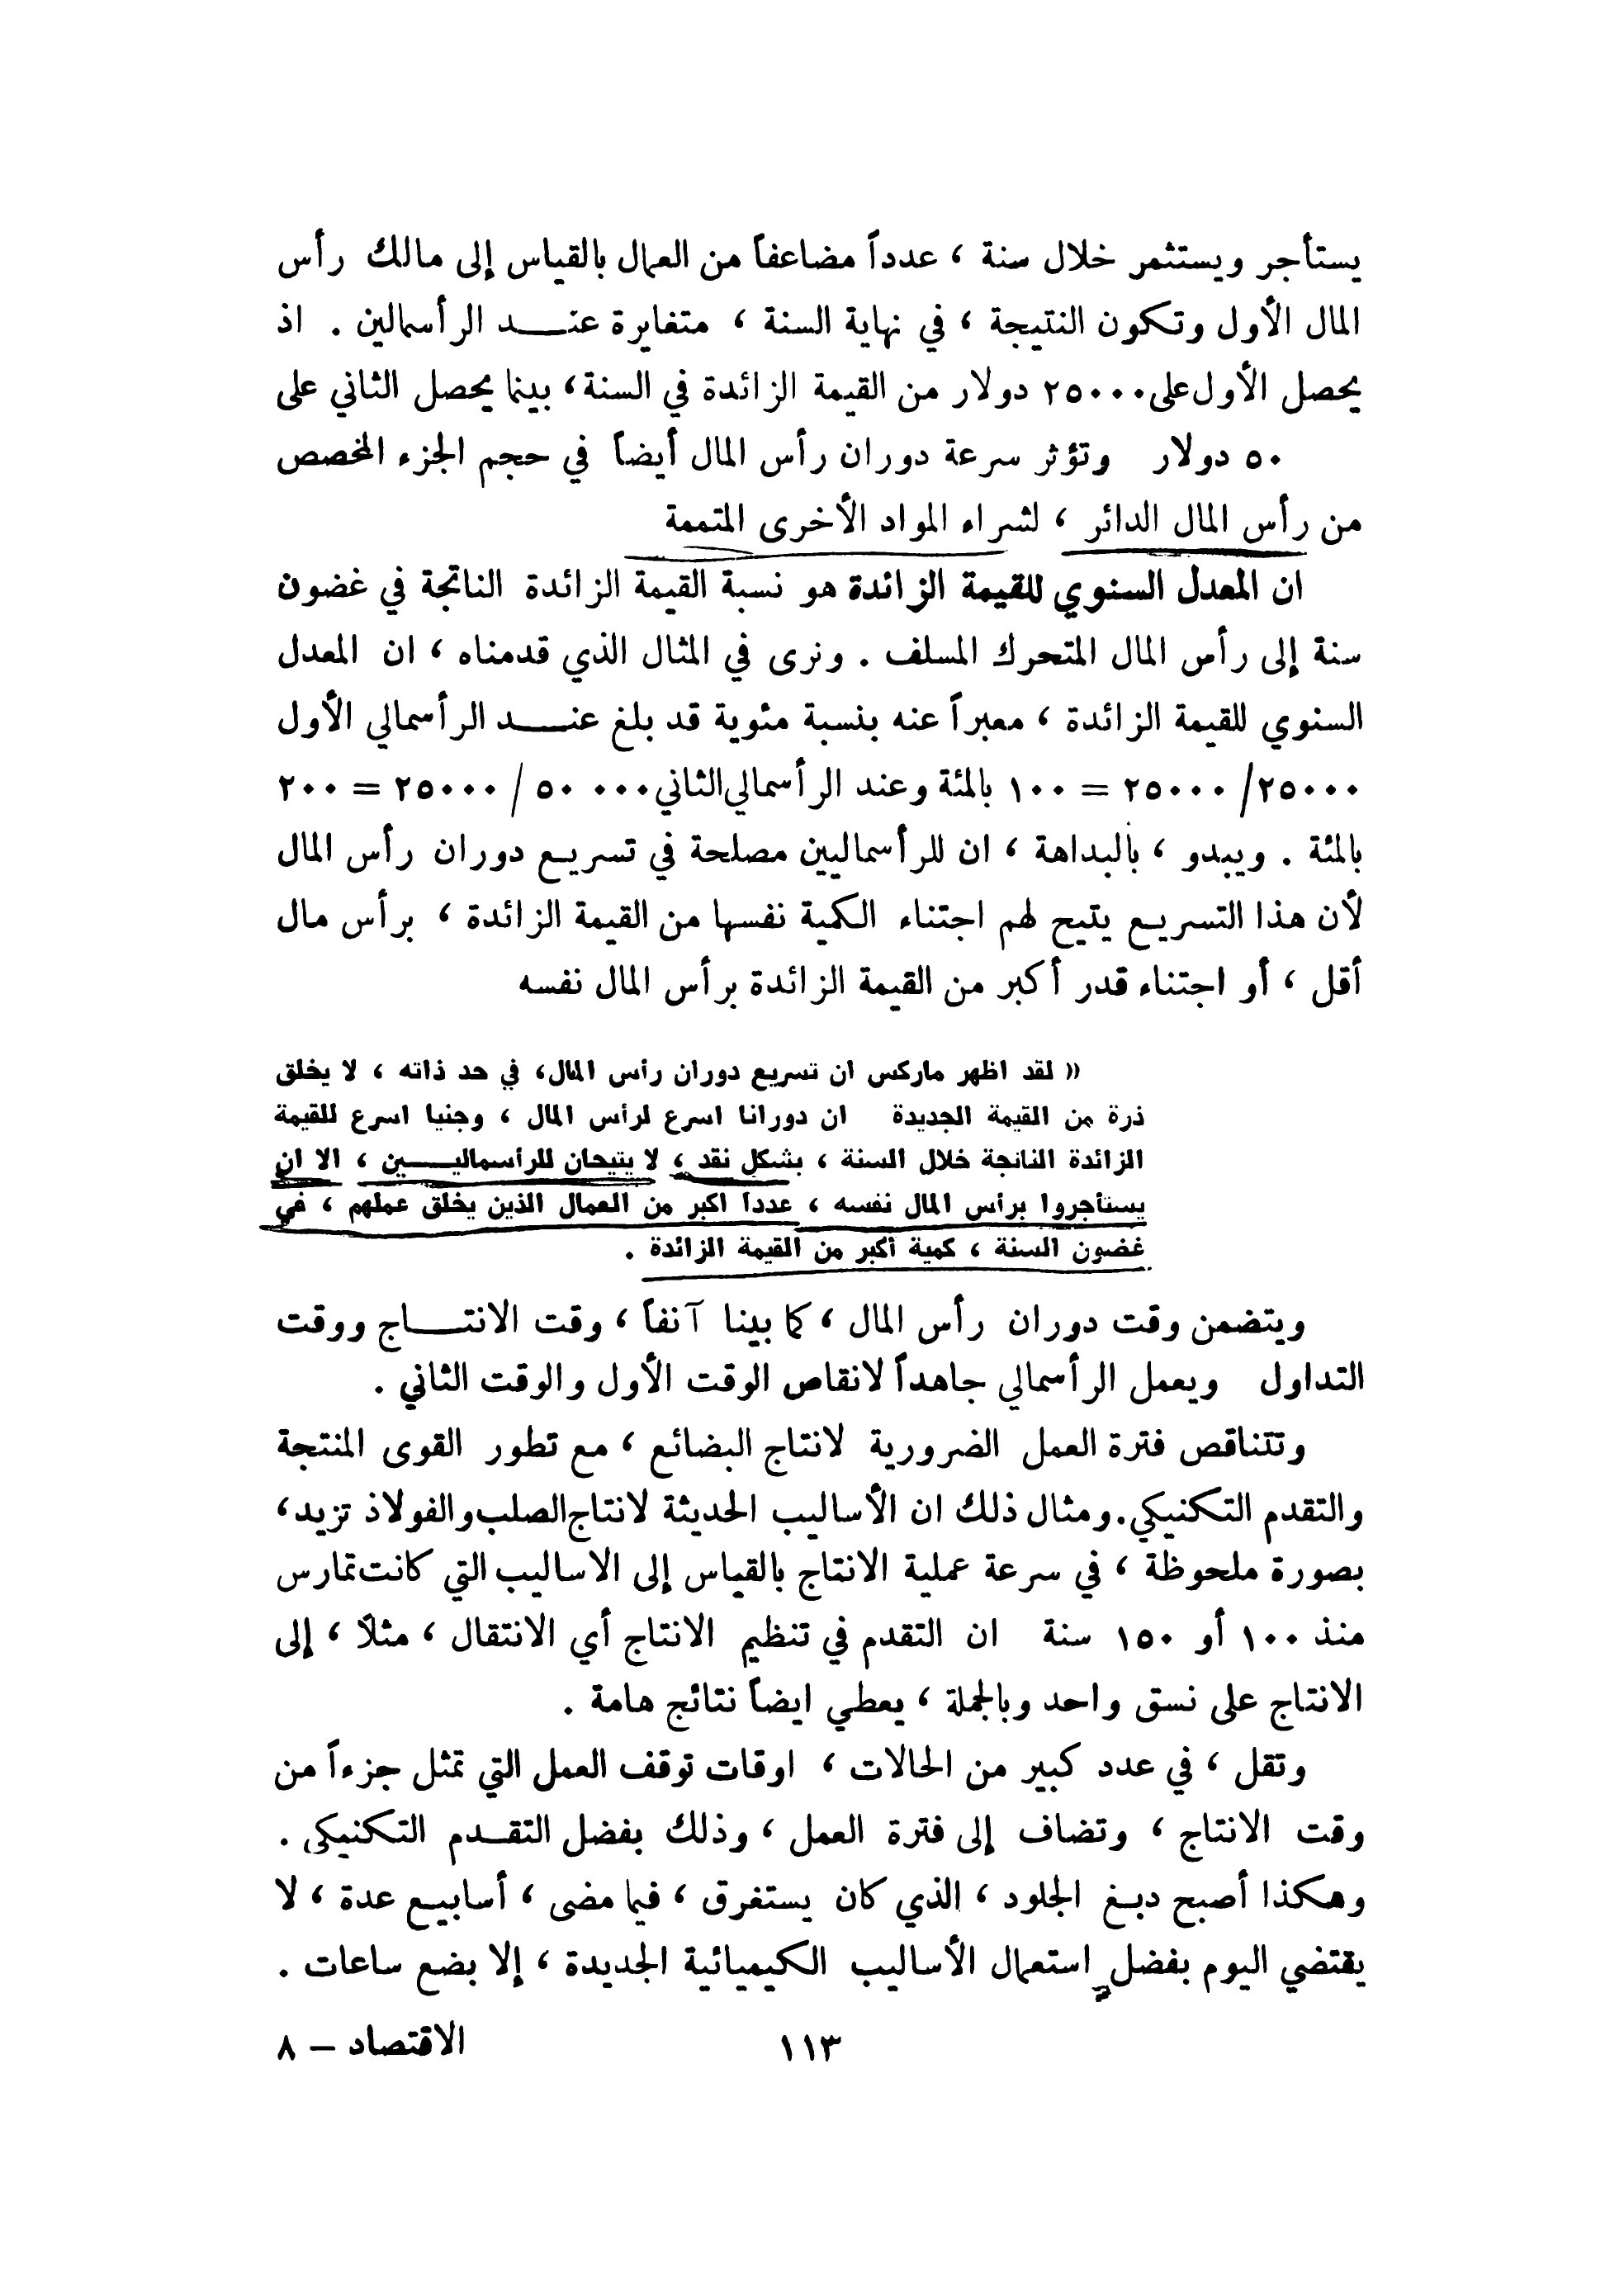 يستأجر ويستثمر خلال سنة ، عدداً مضاعفاً من العمال بالقياس إلى مالك رأس
المال الأول وتكون النتيجة ، في نهاية السنة ، متغايرة عنـــد الرأسمالين . اذ
يحصل الأول على ٢٥٠٠٠ دولار من القيمة الزائدة في السنة ، بينما يحصل الثاني على
٥٠ دولار وتؤثر سرعة دوران رأس المال أيضاً في حجم الجزء المخصص
من رأس المال الدائر ، لشراء المواد الأخرى المتممة
ان المعدل السنوي للقيمة الزائدة هو نسبة القيمة الزائدة الناتجة في غضون
سنة إلى رأس المال المتحرك المسلف . ونرى في المثال الذي قدمناه ، ان المعدل
السنوي للقيمة الزائدة ، معبراً عنه بنسبة مئوية قد بلغ عنـــد الرأسمالي الأول
٢٥٠٠٠/ ٢٥٠٠٠ = ١٠٠ بالمئة وعند الرأسمالي الثاني ٥٠ ٠٠٠ / ٢٥٠٠٠ = ٢٠٠
بالمئة . ويبدو ، بالبداهة ، ان للرأسماليين مصلحة في تسريع دوران رأس المال
لأن هذا التسريع يتيح لهم اجتناء الكمية نفسها من القيمة الزائدة ، برأس مال
أقل ، أو اجتناء قدر أكبر من القيمة الزائدة برأس المال نفسه
« لقد اظهر ماركس ان تسريع دوران رأس المال ، في حد ذاته ، لا يخلق
ذرة من القيمة الجديدة ان دورانا اسرع لرأس المال ، وجنيا اسرع للقيمة
الزائدة الناتجة خلال السنة ، بشكل نقد ، لا يتيحان للرأسماليـــين ، الا ان
يستأجروا برأس المال نفسه ، عددا اكبر من العمال الذين يخلق عملهم ، في
غضون السنة ، كمية أكبر من القيمة الزائدة .
ويتضمن وقت دوران رأس المال ، كما بينا آنفاً ، وقت الانتـــاج ووقت
التداول ويعمل الرأسمالي جاهداً لانقاص الوقت الأول والوقت الثاني .
وتتناقص فترة العمل الضرورية لانتاج البضائع ، مع تطور القوى المنتجة
والتقدم التكنيكي . ومثال ذلك ان الأساليب الحديثة لانتاج الصلب والفولاذ تزيد ،
بصورة ملحوظة ، في سرعة عملية الانتاج بالقياس إلى الاساليب التي كانت تمارس
منذ ١٠٠ أو ١٥٠ سنة ان التقدم في تنظيم الانتاج أي الانتقال ، مثلاً ، إلى
الانتاج على نسق واحد وبالجملة ، يعطي ايضاً نتائج هامة .
وتقل ، في عدد كبير من الحالات ، اوقات توقف العمل التي تمثل جزءاً من
وقت الانتاج ، وتضاف إلى فترة العمل ، وذلك بفضل التقـدم التكنيكي .
وهكذا أصبح دبغ الجلود ، الذي كان يستغرق ، فيما مضى ، أسابيع عدة ، لا
يقتضي اليوم بفضل استعمال الأساليب الكيميائية الجديدة ، إلا بضع ساعات .
١١٣ الاقتصاد – ٨